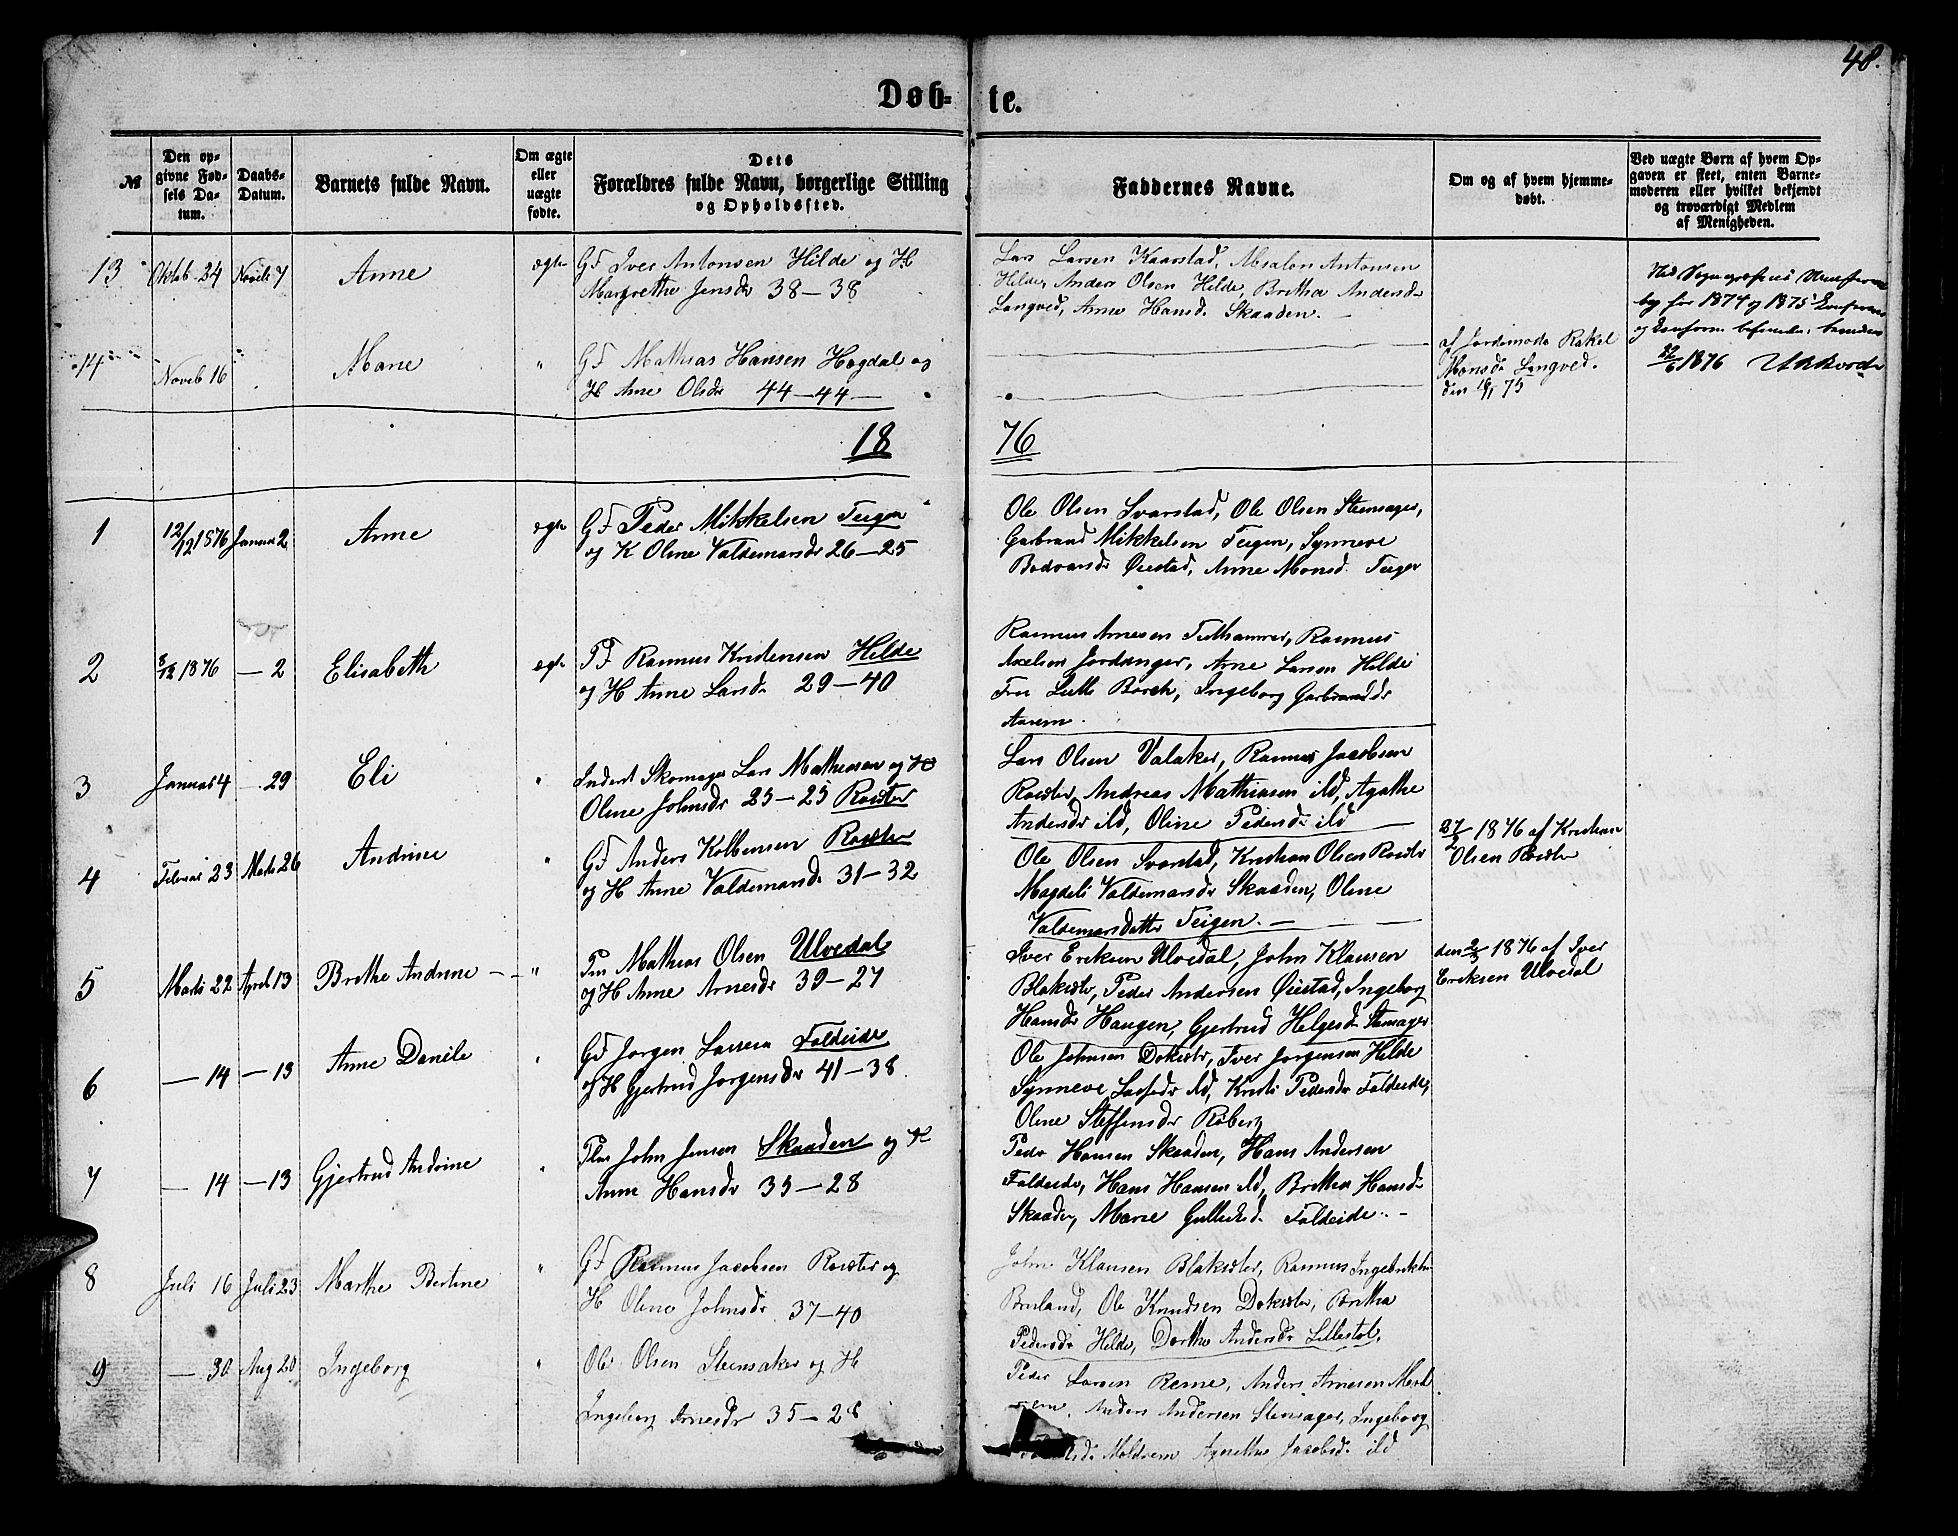 48.
Døb-te.
№
Den op-
givne Fød-
sels Da-
tum.
Daabs-
Datum.
Barnets fulde Navn.
Om ægte
eller
uægte
fødte.
Dets
Forældres fulde Navn, borgerlige Stilling
og Opholdssted.
Faddernes Navne.
Om og af hvem hjemme-
døbt.
Ved uægte Børn af hvem Op-
gaven er skeet, enten Barne-
moderen eller hvilket bekjendt
og troværdigt Medlem
af Menigheden.
13 Oktob 24 Novb 7 Anne ægte
Gf Iver Antonsen Hilde og H
Margrethe Jensdr 38-38
Lars Larsen Kaarstad, Absalon Antonsen
Hilde, Anders Olsen Hilde, Brithe Andersdr
Langved, Anne Hansd. Skaaden. —
Ved
by for 1874 og 1875
1876
14 Novb 16 Marie "
Gf Mathias Hansen Hogdal og
H Anne Olsdr 44-44—
af Jordemoder Rakel
Monsdr Langved.
den 75
18 76
1 12/12 1876 Januar 2 Anne ægte
Gf Peder Mikkelsen Teigen
og K Oline Valdemarsdr 26-25
Ole Olsen Svarstad, Ole Olsen Steensager,
Garbrand Mikkelsen Teigen, Synneve
Bodvarsdr Øiestad, Anne Monsd. Teigen
2 1876 — 2 Elisabeth ægte
Pf Rasmus Kristensen Hilde
og H Anne Larsdr 29-40
Rasmus Arnesen Tuthammer, Rasmus
Axelsen Jordanger, Arne Larsen Hilde
Fru Borch, Ingeborg Garbrandsdr
Aarem.
3 Januar 4 — 29 Eli "
Inderst Skomager Lars Mathiasen og H
Oline Johnsdr 25-25 Roister
Lars Olsen Valaker, Rasmus Jacobsen
Roister, Andreas Mathiasen ild, Agathe
Andersdr ild, Oline Pedersdr ild
4 Februar 23 Marts 26 Andrine "
Gf Anders Kolbensen Roister
og H Anne Valdemarsdr 31-32
Ole Olsen Svarstad, Kristian Olsen Roister
Magdeli Valdemarsdr Skaaden, Oline
Valdemarsdatter Teigen. —
27/2 1876 af Kristian
Olsen Roister
5 Marts 22 April 13 Brithe Andrine — "
Pm Mathias Olsen Ulvedal
og H Anne Arnesdr 39-27
Iver Eriksen Ulvedal, John Klausen
Blakister, Peder Andersen Øiestad, Ingeborg
Hansdr Haugen, Gjertrud Helgesd. Stensager
den 1876 af Iver
Eriksen Ulvedal
6 — 14 — 13 Anne Danile "
Gf Jørgen Lassesen Faldeide
og H Gjertrud Jørgensdr 41-38.
Ole Johnsen Dokister, Iver Jørgensen Hilde
Synneve Lassesdr ild, Kristi Pedersdr Faldeide,
Oline Steffensdr Røberg
7 — 14 — 13 Gjertrud Andrine "
Pls John Jensen Skaaden og H
Anne Hansdr 35-28
Peder Hansen Skaaden, Hans Andersen
Faldeide, Hans Hansen ild, Brithe Hansdr
Skaaden, Marie Gulliksd. Faldeide. -
8 Juli 16 Juli 23 Marthe Bertine "
Gf Rasmus Jacobsen Roister og
H Oline Johnsdr 37-40
John Klausen Blakister, Rasmus
Bruland, Ole Knudsen Dokister, Brithe
Pedersdr Hilde, Dorthe Andersdr Lillestøl.
9 — 30 Aug 20 Ingeborg "
Ole Olsen Steensaker og H
Ingeborg Arnesdr 35-28
Peder Larsen Reme, Anders Arnesen
Anders Andersen Stensager, Ingeborg
Moldrem Agnethe Jacobsd. ild